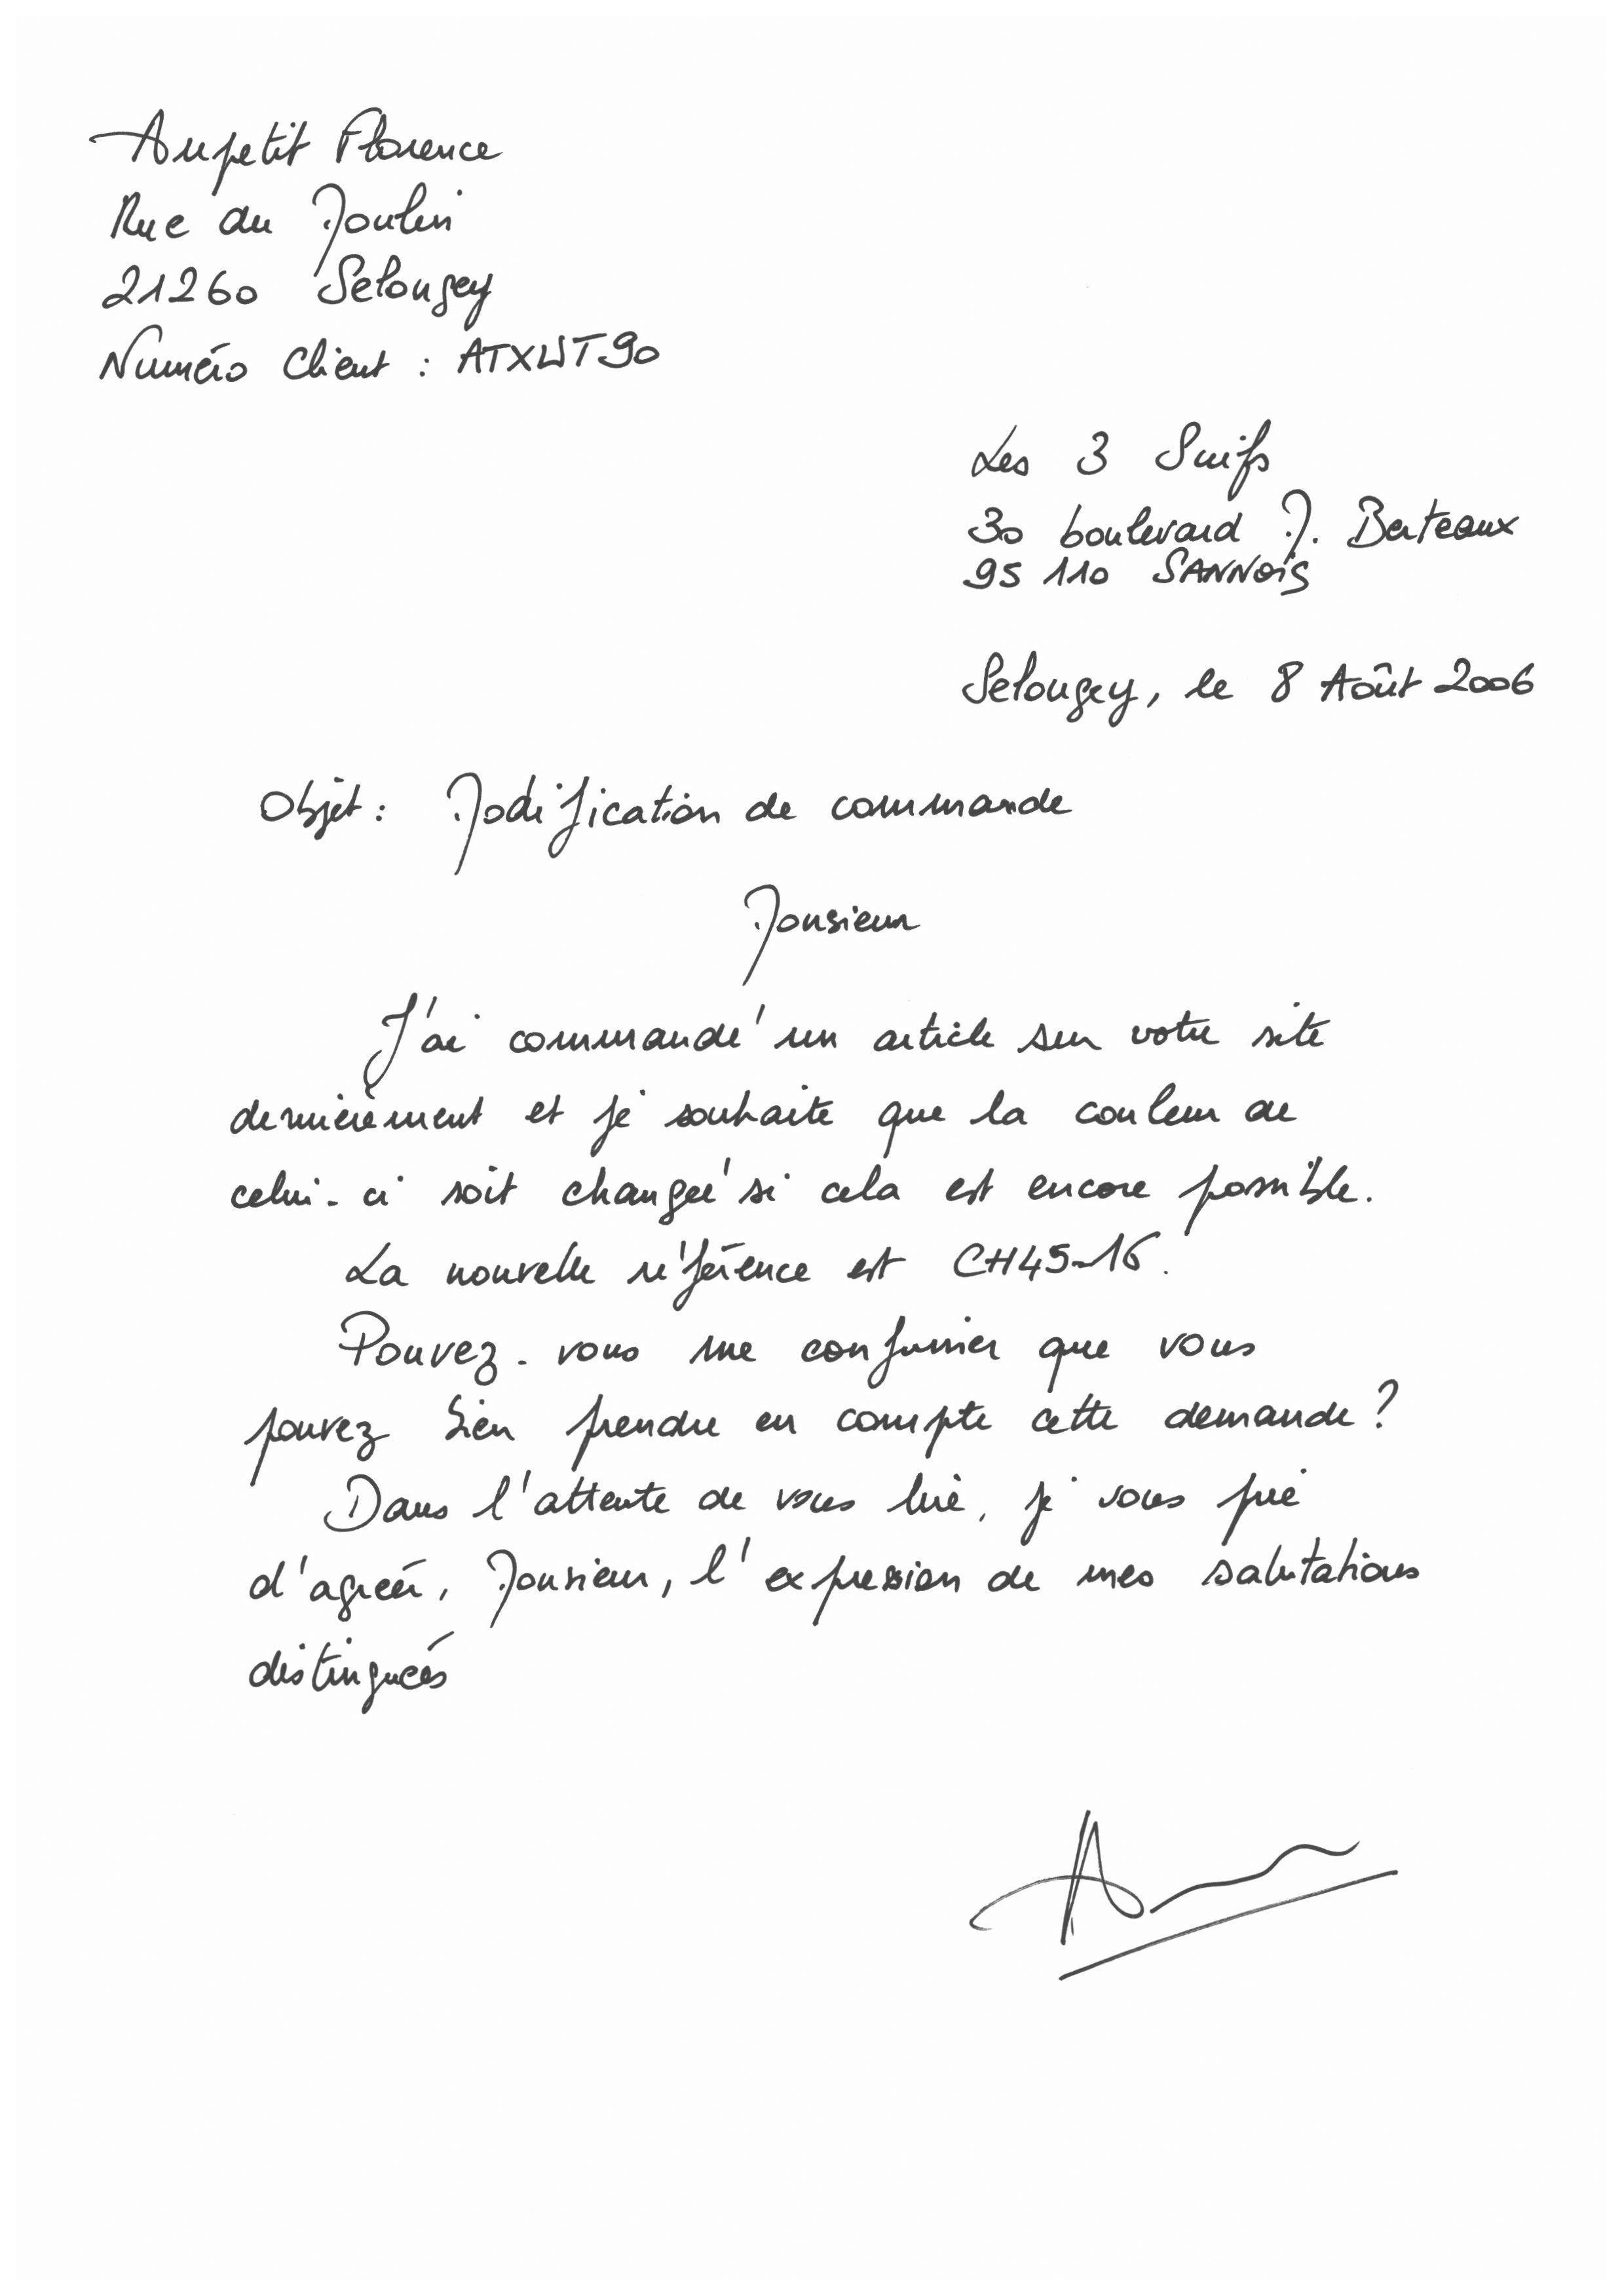 Aupetit Florence
Rue du Moulin
21260 Selongey
Numéro Client : ATXWT90
Les 3 Suifs
30 boulevard M. Berteaux
95 110 SANNOIS
Selongey, le 8 Août 2006
Objet : Modification de commande
Monsieur
J'ai commandé un article sur votre site
dernièrement et je souhaite que la couleur de
celui-ci soit changée si cela est encore possible.
La nouvelle référence est CH45-16.
Pouvez-vous me confirmer que vous
pouvez bien prendre en compte cette demande ?
Dans l'attente de vous lire, je vous prie
d'agréer, Monsieur, l'expression de mes salutations
distinguées